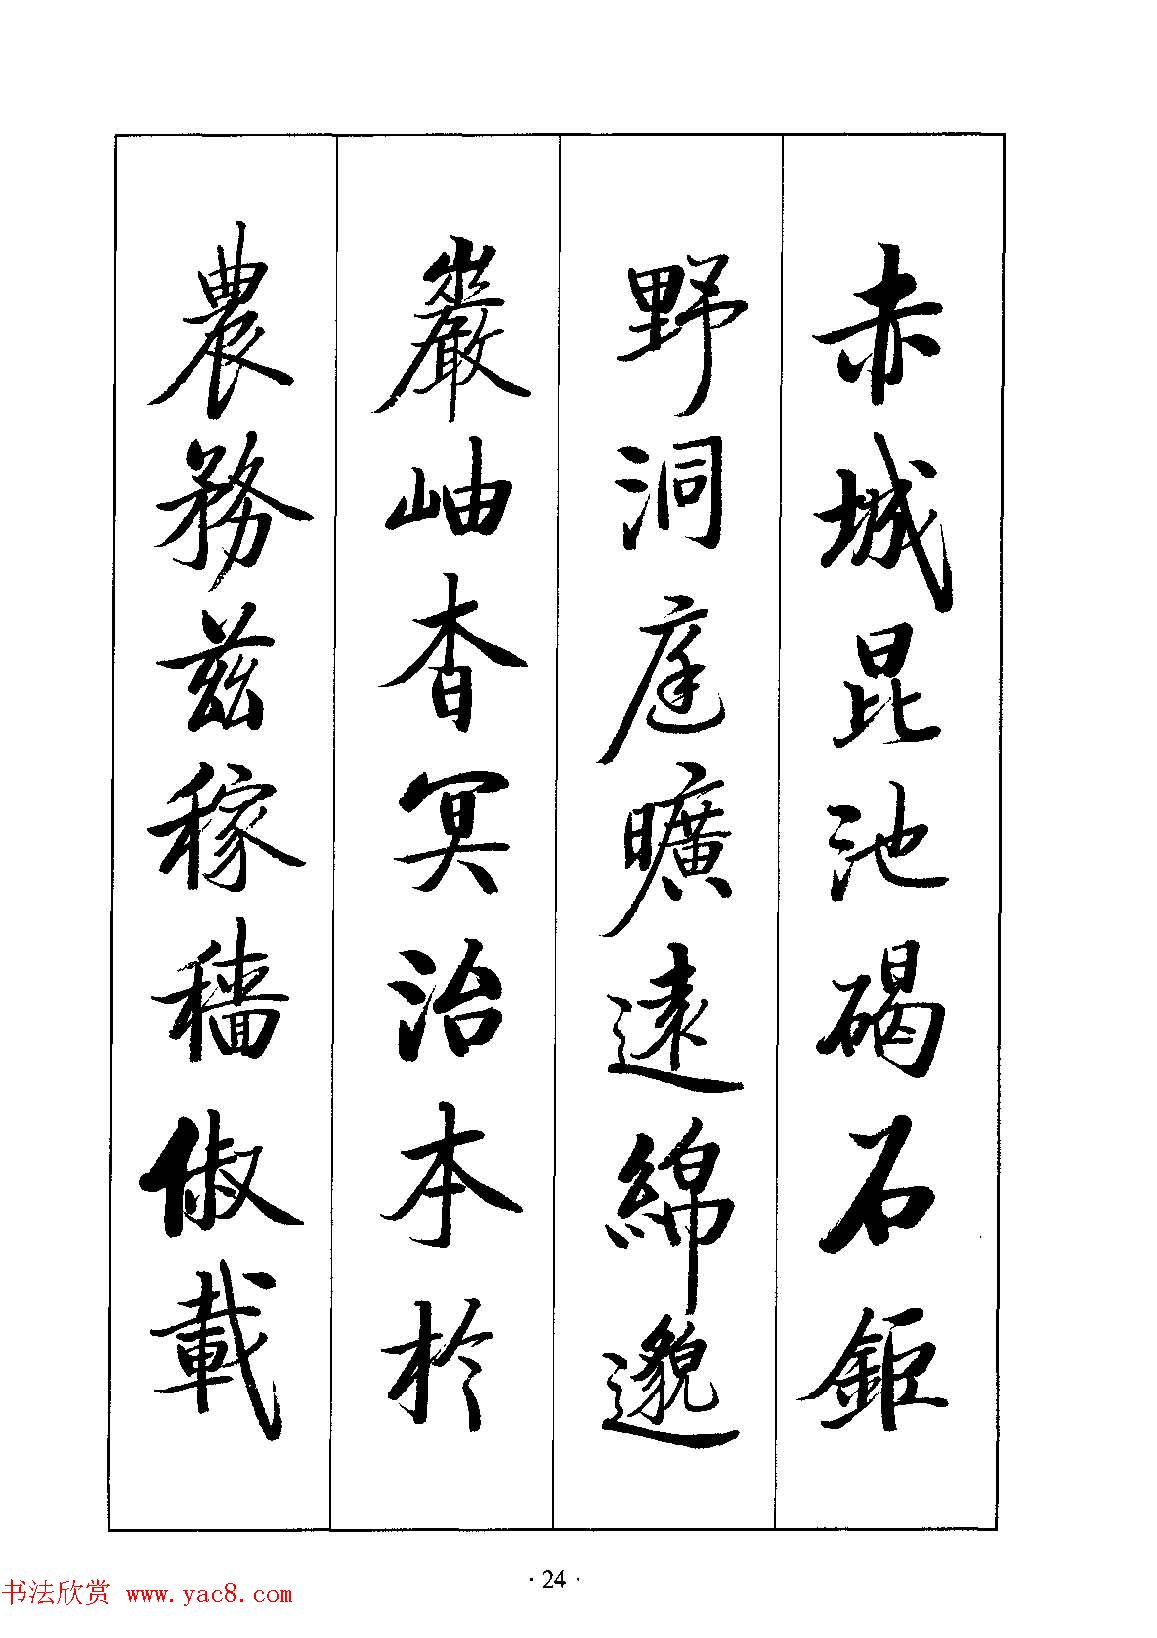 赤城昆池碣石鉅
野洞庭曠遠綿邈
巖岫杳冥治本於
農務茲稼穡俶載
· 24 ·
书法欣赏 www.yac8.com